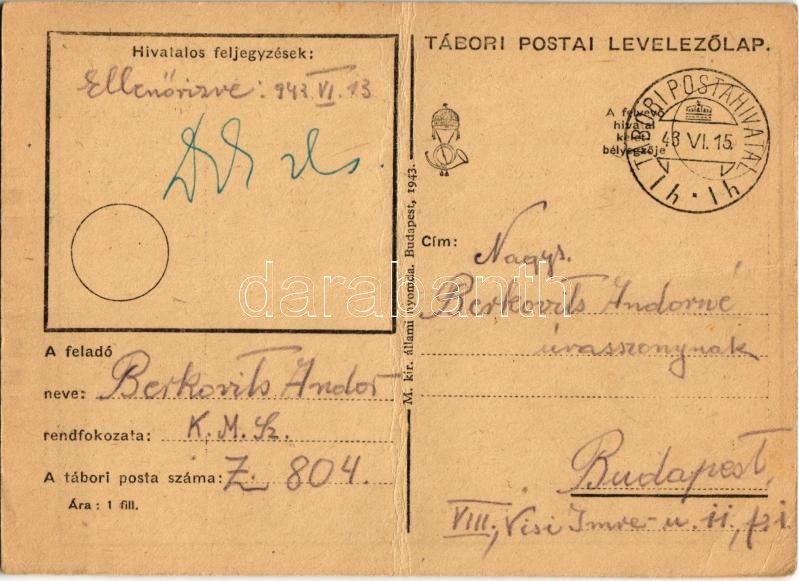 Hivatalos feljegyzések:
Ellenőrizve: 943 VI. 13
TÁBORI POSTAI LEVELEZŐLAP.
A felvevő
hivatal
keleti
bélyegzője
TÁBORI POSTAHIVATAL
43 VI. 15.
1h · 1h
M. kir. állami nyomda. Budapest, 1943.
Cím: Nagys.
Berkovits Andorné
úrasszonynak
Budapest,
VIII., Visi Imre-u. 11, fz. 1.
A feladó
neve: Berkovits Andor
rendfokozata: K. M. Sz.
A tábori posta száma: Z. 804.
Ára: 1 fill.
darabanth